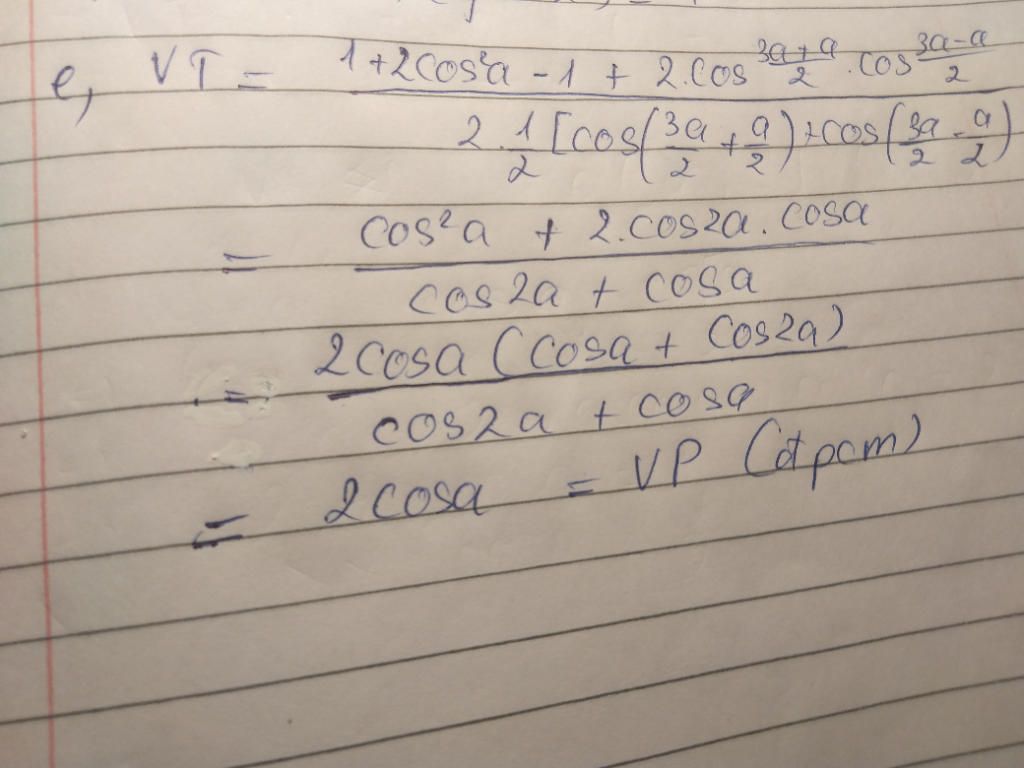 e, VT = 1+2cos²a - 1 + 2.cos 3a+a/2 .cos 3a-a/2
2.1/2 [cos(3a/2 + a/2)+cos(3a/2 - a/2)
= cos²a + 2.cos2a.cosa
cos2a + cosa
= 2cosa (cosa + cos2a)
cos2a + cosa
= 2cosa = VP (đpcm)